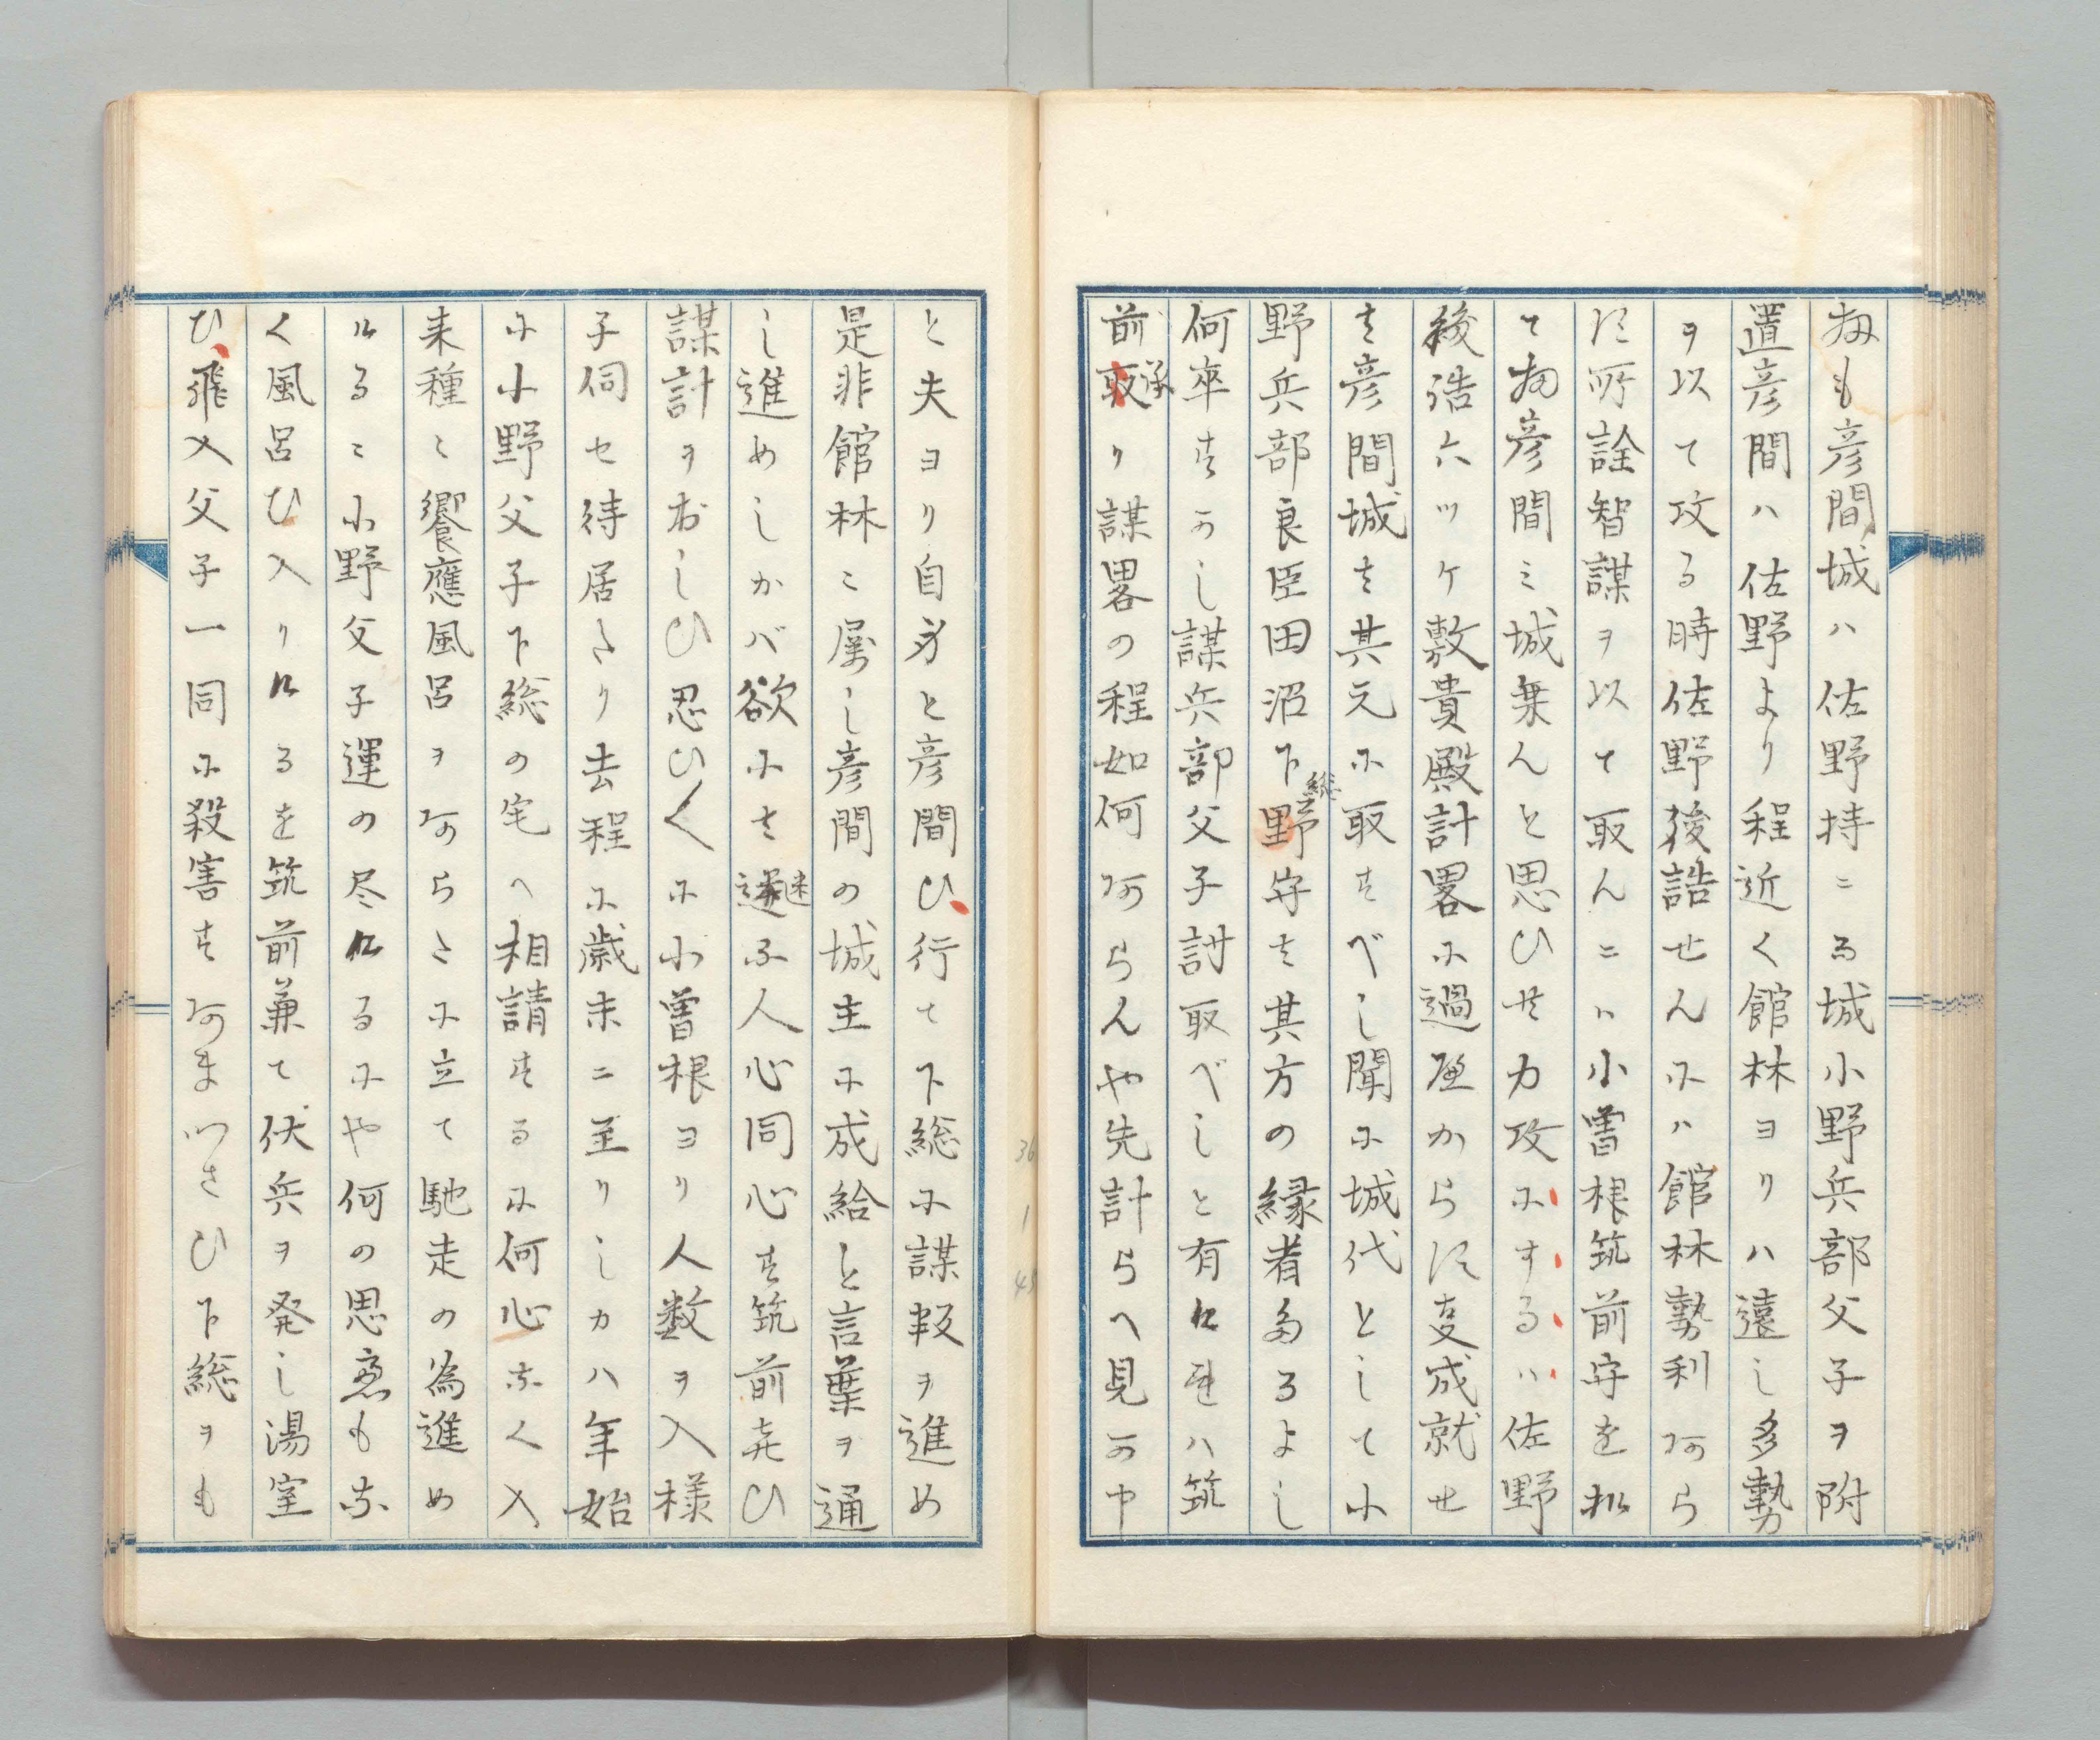 扨も彦間城ハ佐野持ニゐ城小野兵部父子ヲ附
置彦間ハ佐野より程近く館林ヨリハ遠し多勢
ヲ以て攻る時佐野後詰せんにハ館林勢利あら
ず所詮智謀ヲ以て取んニハ小曽根筑前守を招
て扨彦間ミ城乗んと思ひ共力攻にするハ佐野
後詰六ツケ敷貴殿計畧に過べからず支成就せ
ま彦間城ま其元に取すべし聞に城代として小
野兵部良臣田沼下野守ま其方の縁者多るよし
総
何卒すかし謀兵部父子討取べしと有ければ筑
前承取り謀畧の程如何あらんや先計らへ見可申
と夫ヨリ自身と彦間ひ行て下総に謀叛ヲ進め
是非館林ニ属し彦間の城主に成給と言葉ヲ通
し進めしかバ欲にま迷ふ人心同心す筑前㐂ひ
謀計ヲおしひ忍ひ〱に小曽根ヨリ人数ヲ入様
子伺セ待居たり去程に歳末ニ至りしカハ年始
に小野父子下総の宅へ相請するに何心なく入
来種々饗應風呂ヲあらたに立て馳走の為進め
ルるニ小野父子運の尽けるにや何の思慮もな
く風呂ひ入りけるを筑前兼て伏兵ヲ発し湯室
ひ飛入父子一同に殺害すあまつさひ下総ヲも
36
1
45